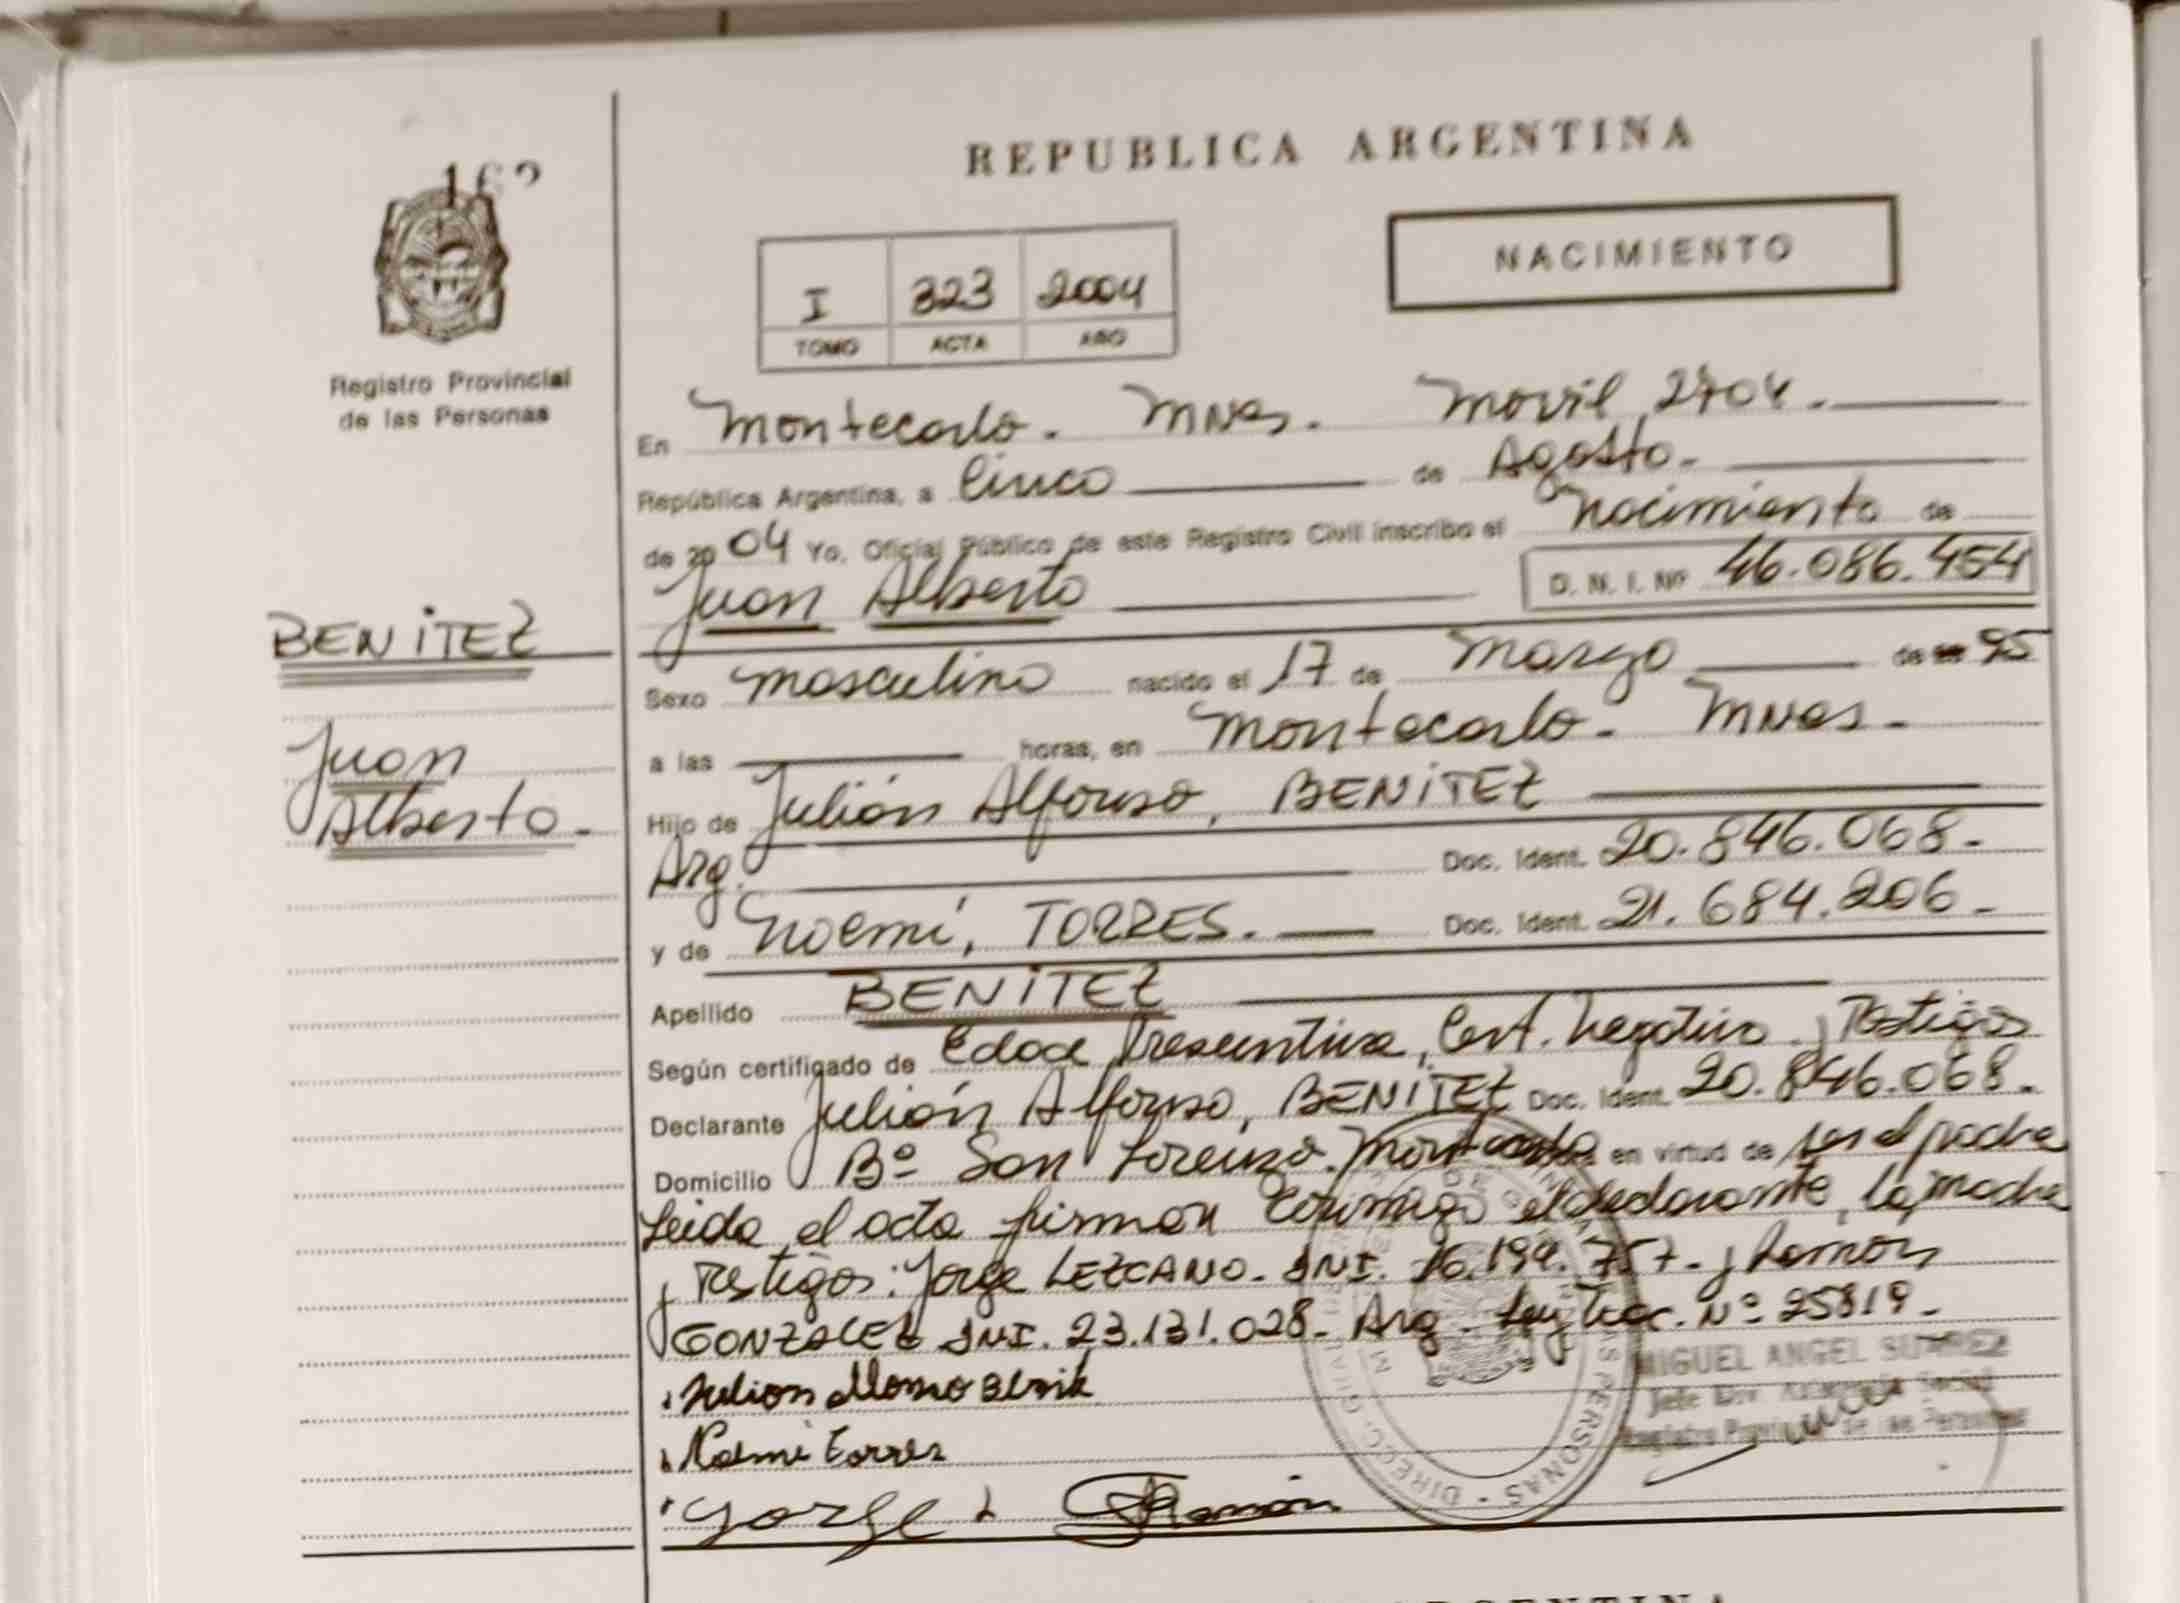 REPUBLICA ARGENTINA
162
NACIMIENTO
I 323 2004
TOMO ACTA AÑO
Registro Provincial
de las Personas
En Montecarlo. Mnes. Movil 2704.
República Argentina, a Cinco de Agosto.
de 2004 Yo, Oficial Público de este Registro Civil inscribo el Nacimiento de
Juan Alberto D. N. I. Nº 46.086.454
BENITEZ
Juan
Alberto.
Sexo masculino nacido el 17 de Marzo de 95
a las horas, en Montecarlo. Mnes.
Hijo de Julián Alfonso, BENITEZ
Arg. Doc. Ident. 20.846.068.
y de Noemí, TORRES. Doc. Ident. 21.684.206.
Apellido BENITEZ
Según certificado de Edad Presuntiva, Cert. Negativo y Testigos
Declarante Julián Alfonso, BENITEZ Doc. Ident. 20.846.068.
Domicilio Bº San Lorenzo. Montecarlo en virtud de ser el padre
Leida el acta firman conmigo el declarante, la madre
y Testigos: Jorge LEZCANO. DNI. 16.194.757. y Ramón
GONZALEZ DNI. 23.131.028. Arg. Ley Nac. Nº 25819.
MIGUEL ANGEL SUAREZ
Registro Provincial de las Personas
Noemi Torres
Jorge L Ramón
REPUBLICA ARGENTINA